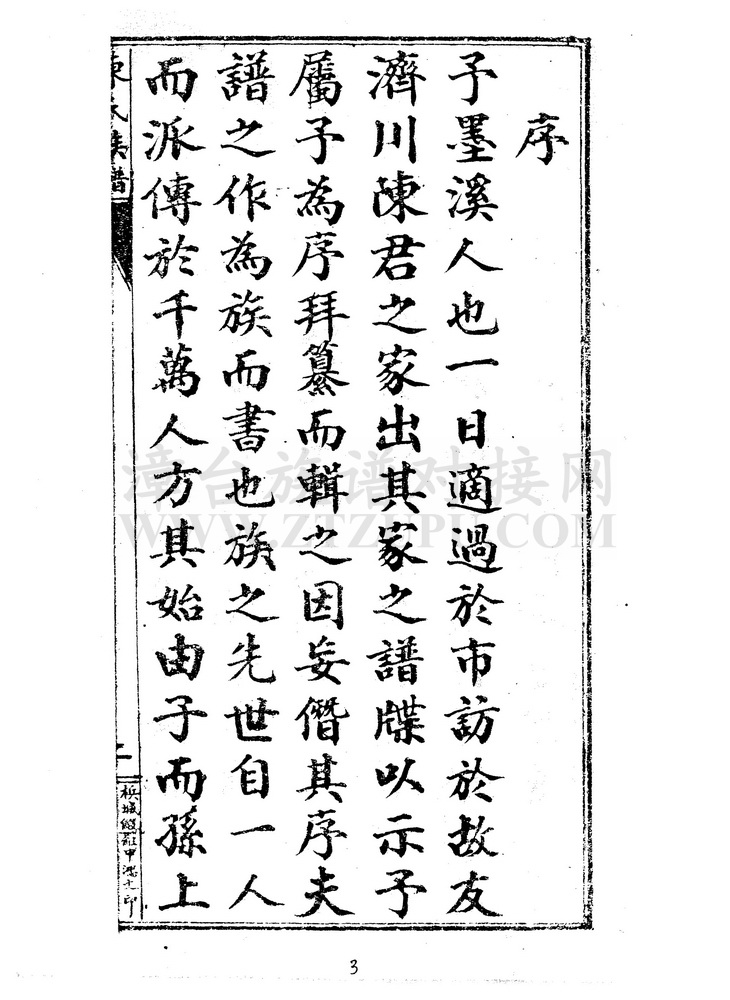 序
予墨溪人也一日適過於市訪於故友
濟川陳君之家出其家之譜牒以示予
屬予為序拜纂而輯之因妄僭其序夫
譜之作為族而書也族之先世自一人
而派傳於千萬人方其始由子而孫上
陳氏族譜
二
漳台族谱对接网
WWW.ZTZUPU.COM
3